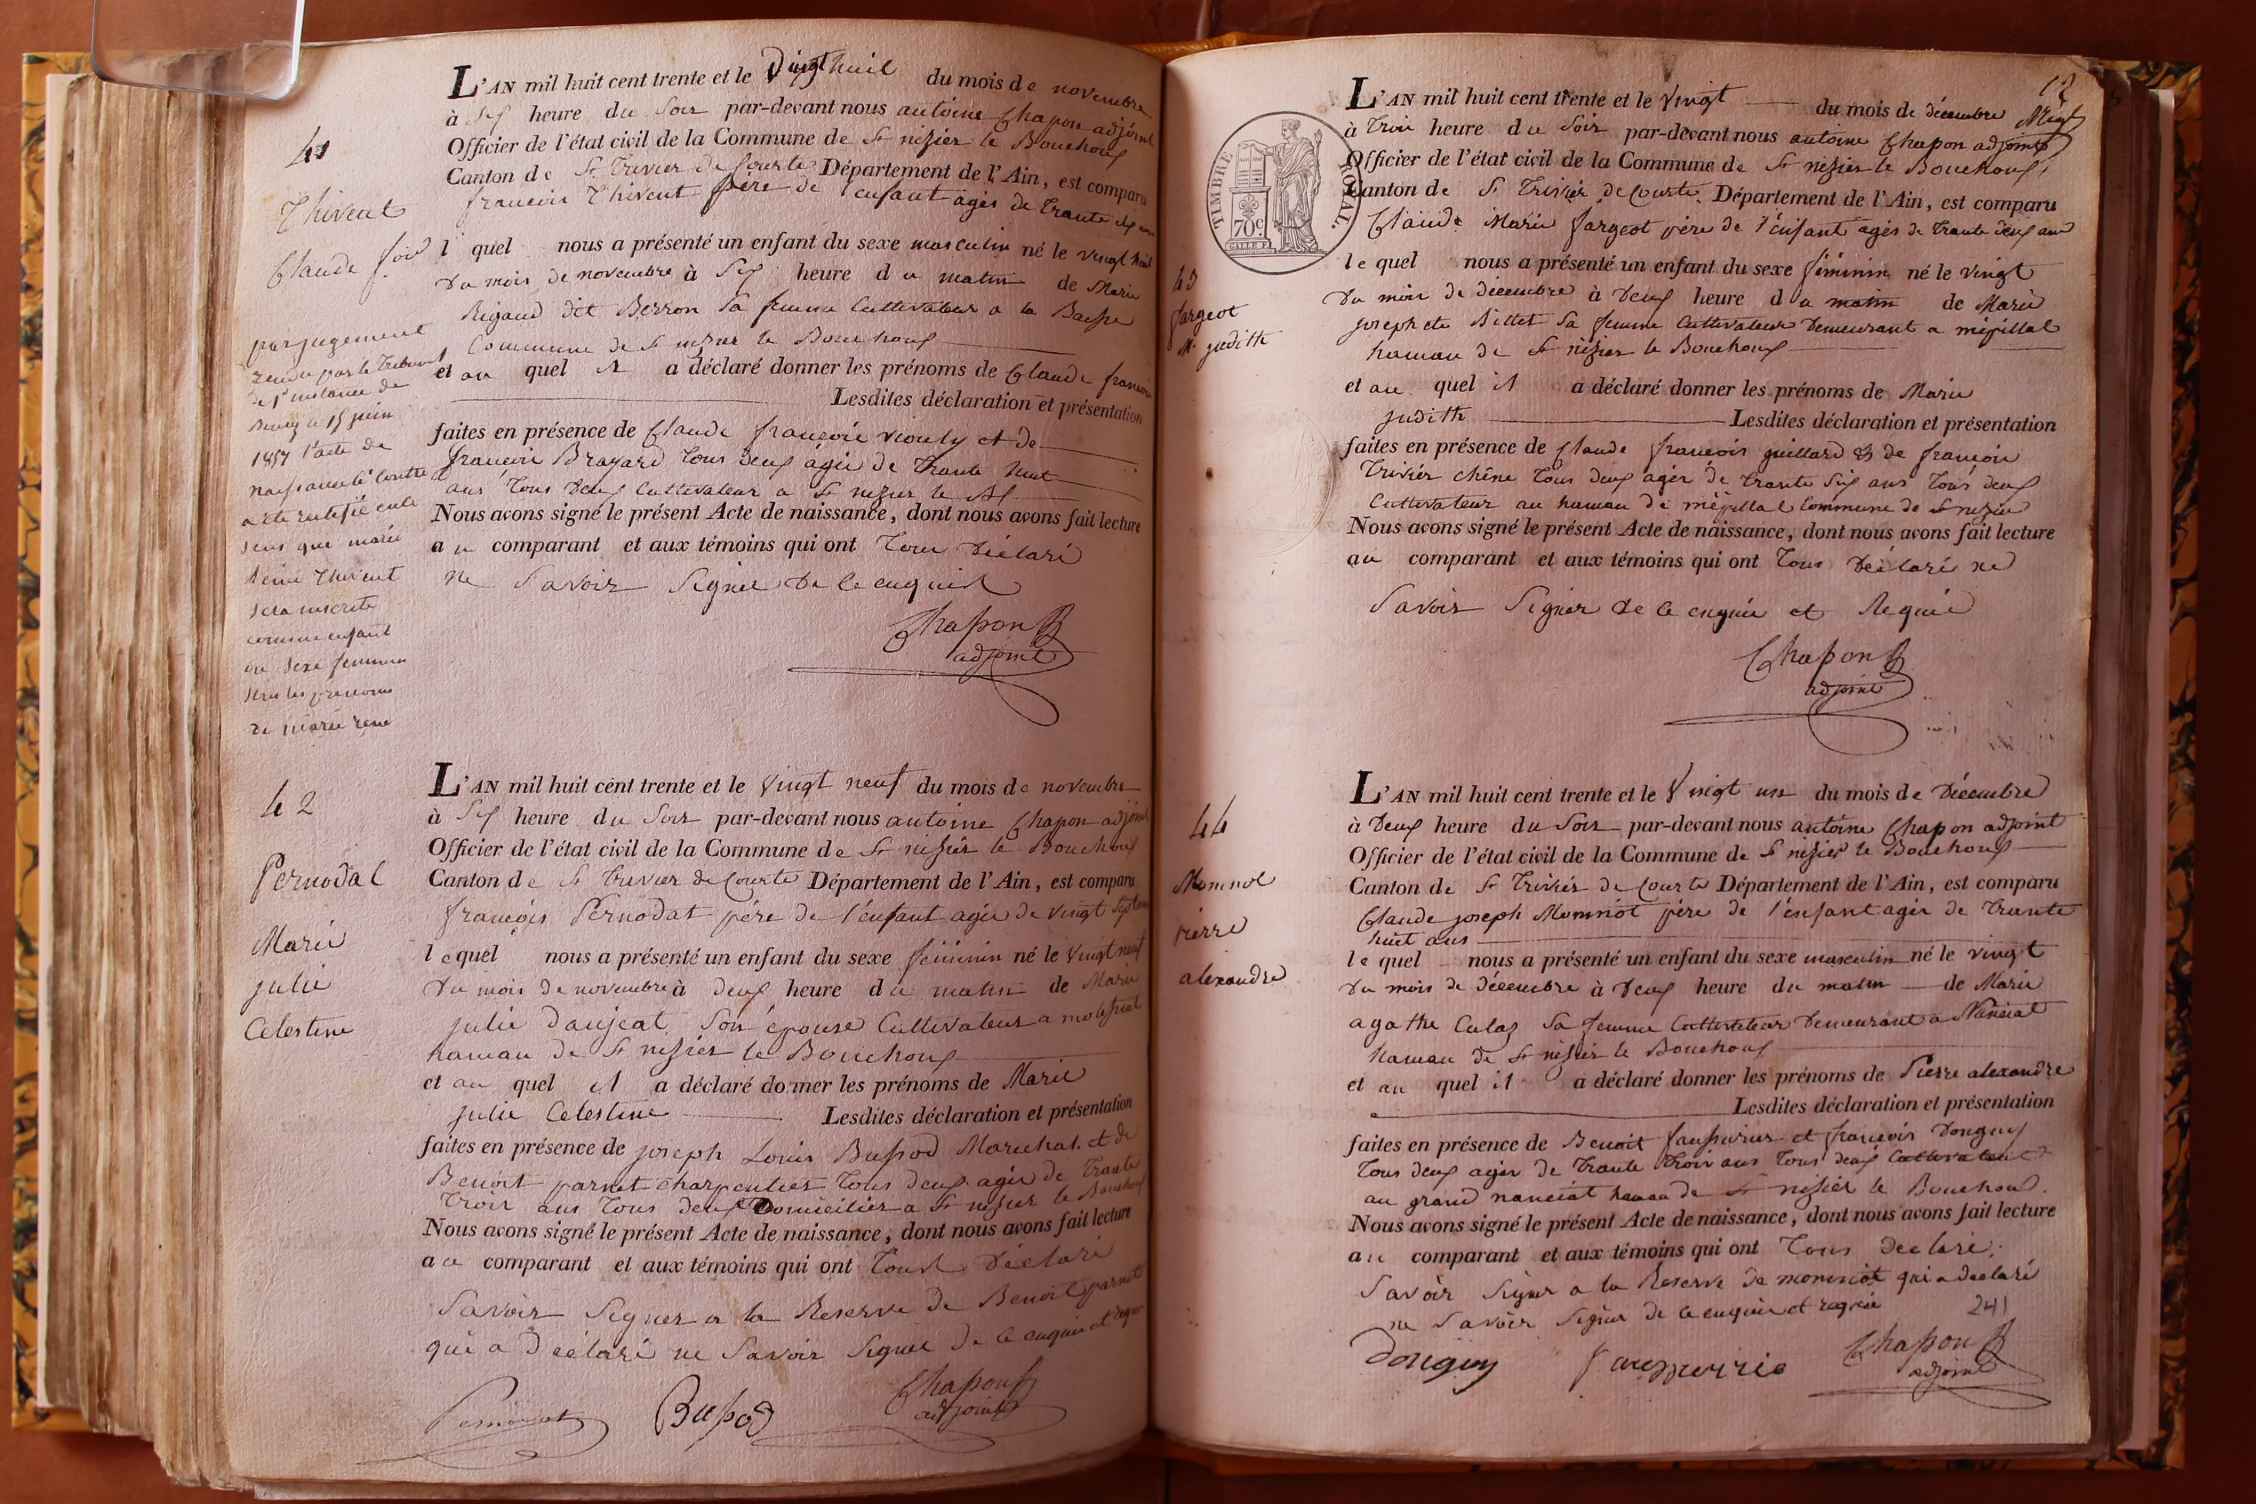 41
Thivent
Claude fois
par jugement
rendu par le Tribunal
de 1ere instance de
Bourg le 15 juin
1857 l'acte de
naissance ci contre
a ete rectifié en le
sens que marie
René Thivent
sera inscrite
comme enfant
du sexe feminin
sous les prenoms
de marie rene
L'AN mil huit cent trente et le vingt huit du mois de novembre
à Six heure du Soir par-devant nous antoine Chapon adjoint
Officier de l'état civil de la Commune de St nizier le Bouchoux
Canton de St Trivier de Courte Département de l'Ain, est comparu
francois Thivent père de l'enfant agés de trante
l quel nous a présenté un enfant du sexe masculin né le vingt huit
Du mois de novembre à Six heure du matin de Marie
Rigaud dit Berron Sa femme Cultivateur a la
Commune de St nizier le Bouchoux
et au quel il a déclaré donner les prénoms de Claude francois
Lesdites déclaration et présentation
faites en présence de Claude francois viouly et de
francois Brayard tous deux âgés de trante huit
ans Tous Deux Cultivateur a St nizier le
Nous avons signé le présent Acte de naissance, dont nous avons fait lecture
au comparant et aux témoins qui ont Tous Déclaré
ne Savoir Signer De Ce enquis
Chapon
adjoint
42
Pernodat
Marie
julie
Celestine
L'AN mil huit cent trente et le vingt neuf du mois de novembre
à Six heure du Soir par-devant nous antoine Chapon adjoint
Officier de l'état civil de la Commune de St nizier le Bouchoux
Canton de St Trivier de Courte Département de l'Ain, est comparu
françois Pernodat père de l'enfant agés de vingt Sept ans
lequel nous a présenté un enfant du sexe féminin né le vingt neuf
Du mois de novembre à deux heure du matin de Marie
julie Daujeat Son épouse Cultivateur a
hamau de St nizier le Bouchoux
et au quel il a déclaré donner les prénoms de Marie
julie Celestine Lesdites déclaration et présentation
faites en présence de joseph Louis Bussod Marechal et de
Benoit parnet charpentier Tous deux agés de Trante
Trois ans Tous deux Domicilier a St nizier le Bouchoux
Nous avons signé le présent Acte de naissance, dont nous avons fait lecture
au comparant et aux témoins qui ont Tous Déclaré
Savoir Signer a la Reserve de Benoit parnet
qui a Déclaré ne Savoir Signer De Ce enquis et requis
Pernodat Bussod Chapon
adjoint
12
TIMBRE ROYAL
70 c
43
fargeot
M. judith
L'AN mil huit cent trente et le vingt du mois de décembre
à Trois heure du Soir par-devant nous antoine Chapon adjoint
Officier de l'état civil de la Commune de St nizier le Bouchoux,
Canton de St Trivier de Courte. Département de l'Ain, est comparu
Claude Marie fargeot père de l'énfant agés de trante deux ans
lequel nous a présenté un enfant du sexe féminin né le vingt
Du mois de décembre à deux heure du matin de Marie
josephete Billet Sa femme Cultivateur Demeurant a mépillat
hamau de St nizier le Bouchoux
et au quel il a déclaré donner les prénoms de Marie
judith Lesdites déclaration et présentation
faites en présence de Claude francois guillard & de francois
Trivier chêne tous deux agér de trante Six ans Tous deux
Cultivateur au hamau de mépillat Commune de St nizier
Nous avons signé le présent Acte de naissance, dont nous avons fait lecture
au comparant et aux témoins qui ont Tous Déclaré ne
Savoir Signer De Ce enquis et Requis
Chapon
adjoint
44
Momniot
pierre
alexandre
L'AN mil huit cent trente et le vingt un du mois de Décembre
à Deux heure du Soir par-devant nous antoine Chapon adjoint
Officier de l'état civil de la Commune de St nizier le Bouchoux
Canton de St Trivier de Courte Département de l'Ain, est comparu
Claude joseph Momniot père de l'énfant agér de trante
huit ans
lequel nous a présenté un enfant du sexe masculin né le vingt
Du mois de décembre à Deux heure du matin de Marie
agathe Culas Sa femme Cultivateur Demeurant a Nanciat
hamau de St nizier le Bouchoux
et au quel il a déclaré donner les prénoms de Pierre alexandre
Lesdites déclaration et présentation
faites en présence de Benoit faussurier et francois Donguy
Tous deux agér de trante trois ans Tous deux Cultivateur
au grand nanciat hamau de St nizier le Bouchoux.
Nous avons signé le présent Acte de naissance, dont nous avons fait lecture
au comparant et aux témoins qui ont Tous Declaré;
Savoir Signer a la Reserve de momniot qui a declaré
ne Savoir Signer de ce enquis et requis
241
Donguy Chapon
adjoint